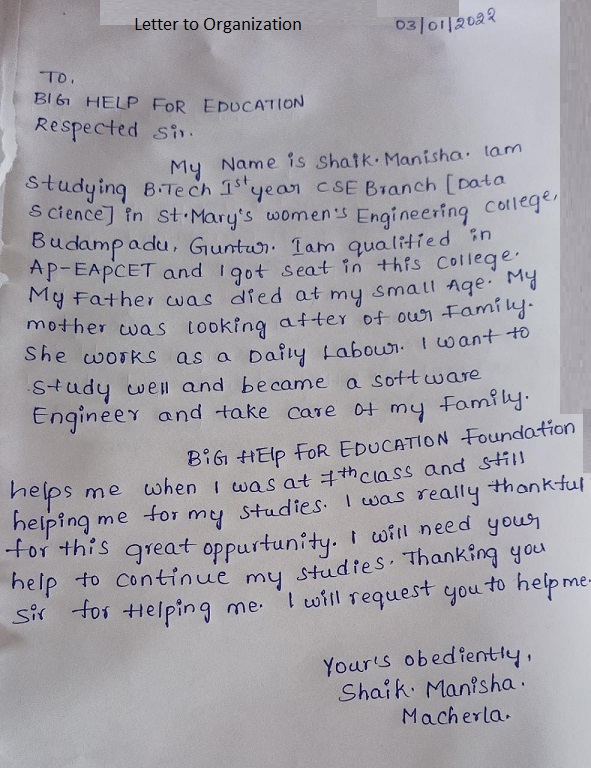 Letter to Organization
03/01/2022
TO,
BIG HELP FOR EDUCATION
Respected Sir.
My Name is Shaik. Manisha. Iam
studying B.Tech Ist year CSE Branch [Data
Science] in St.Mary's women's Engineering College,
Budampadu, Guntur. Iam qualified in
AP-EAPCET and I got seat in this College.
My Father was died at my small Age. My
mother was looking after of our Family.
She works as a Daily Labour. I want to
study well and became a software
Engineer and take care of my Family.
BiG HElp FoR EDUCATION Foundation
helps me when I was at 7th class and still
helping me for my studies. I was really thankful
for this great oppurtunity. I will need your
help to continue my studies. Thanking you
Sir for Helping me. I will request you to help me.
Your's obediently,
Shaik. Manisha.
Macherla.